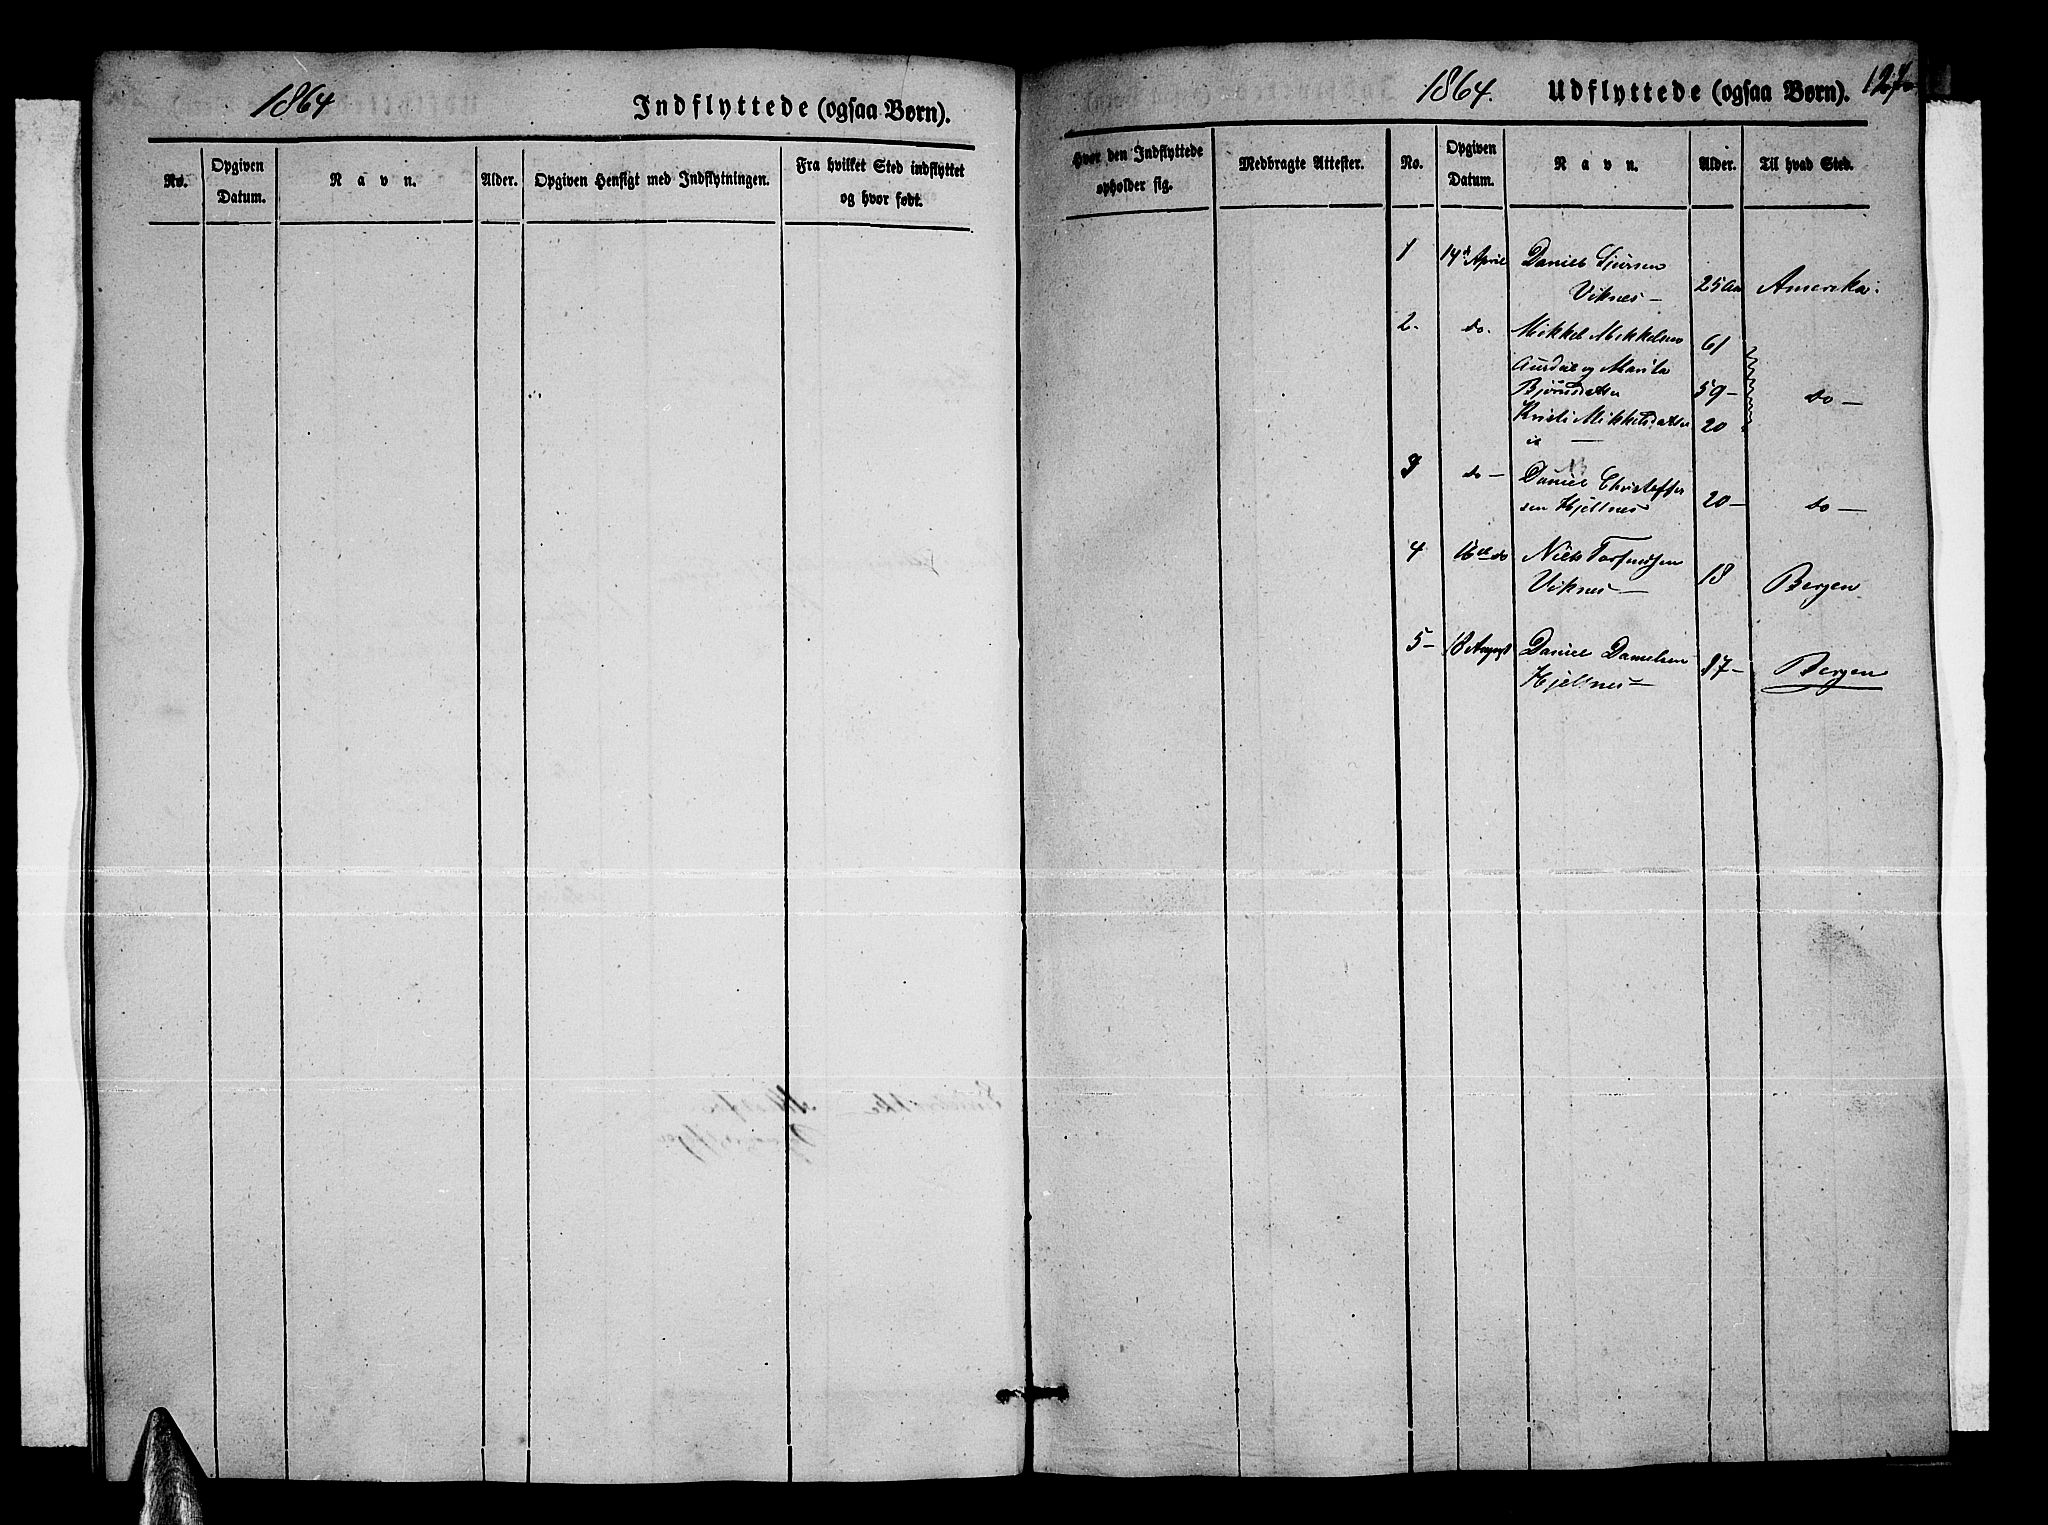 1864
Indflyttede (ogsaa Børn).
No.
Opgiven
Datum.
Navn.
Alder.
Opgiven Hensigt med Indflytningen.
Fra hvilket Sted indflyttet
og hvor født.
1864.
Udflyttede (ogsaa Børn).
127
Hvor den Indflyttede
opholder sig.
Medbragte Attester.
No.
Opgiven
Datum.
Navn.
Alder.
Til hvad Sted.
1 14d April Daniel Sjursen
Viknes — 25 Aar Amerika.
2. do. Mikkel Mikkelsen 61
Aurdal og Marita
Bjørnsdatter 59 — do —
Kristi Mikkelsdatter 20
3 do — Daniel Christoffer
sen Hjeltnes 20 — do —
4 16de do Niels Torfinsen
Viknes — 18 Bergen
5 — 18 August Daniel Danielsen
Hjeltnes — 17 — Bergen